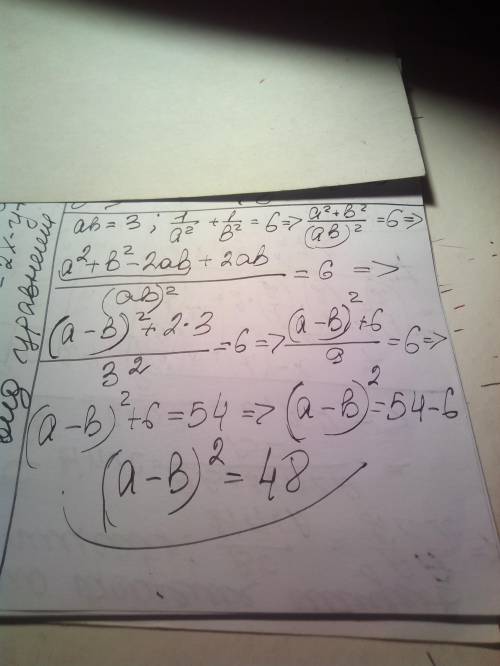 ab = 3 ; 1/a² + 1/b² = 6 => (a² + b²)/(ab)² = 6 =>
(a² + b² - 2ab + 2ab)/(ab)² = 6 =>
((a - b)² + 2·3)/3² = 6 => ((a - b)² + 6)/9 = 6 =>
(a - b)² + 6 = 54 => (a - b)² = 54 - 6
(a - b)² = 48
уравнение